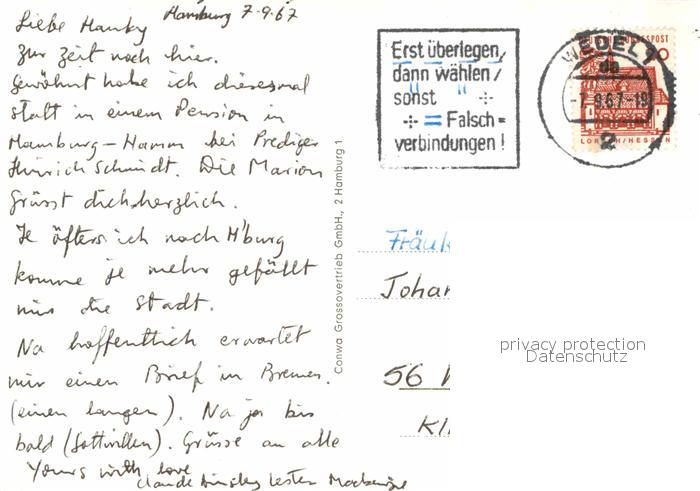 Hamburg 7-9.67
Liebe Hanky
Zur Zeit noch hier.
Gewohnt habe ich diesesmal
statt in einem Pension in
Hamburg-Hamm bei Prediger
Hinrich Schmidt. Die Marion
Grüsst dich herzlich.
Je öfters ich nach H'burg
komme je mehr gefällt
mir die Stadt.
Na hoffentlich erwartet
mir einen Brief in Bremen.
(einen langen). Na ja bis
bald (Gottwillen). Grüsse an alle
Yours with love
Claude Lester Mackenzie
Conwa Grossovertrieb GmbH., 2 Hamburg 1
Erst überlegen,
dann wählen/
sonst
= Falsch=
verbindungen!
WEDEL
da
-7.9.67-19
2
BUNDESPOST
LORSCH/HESSEN
Fräul
Johan
56
Kl
privacy protection
Datenschutz